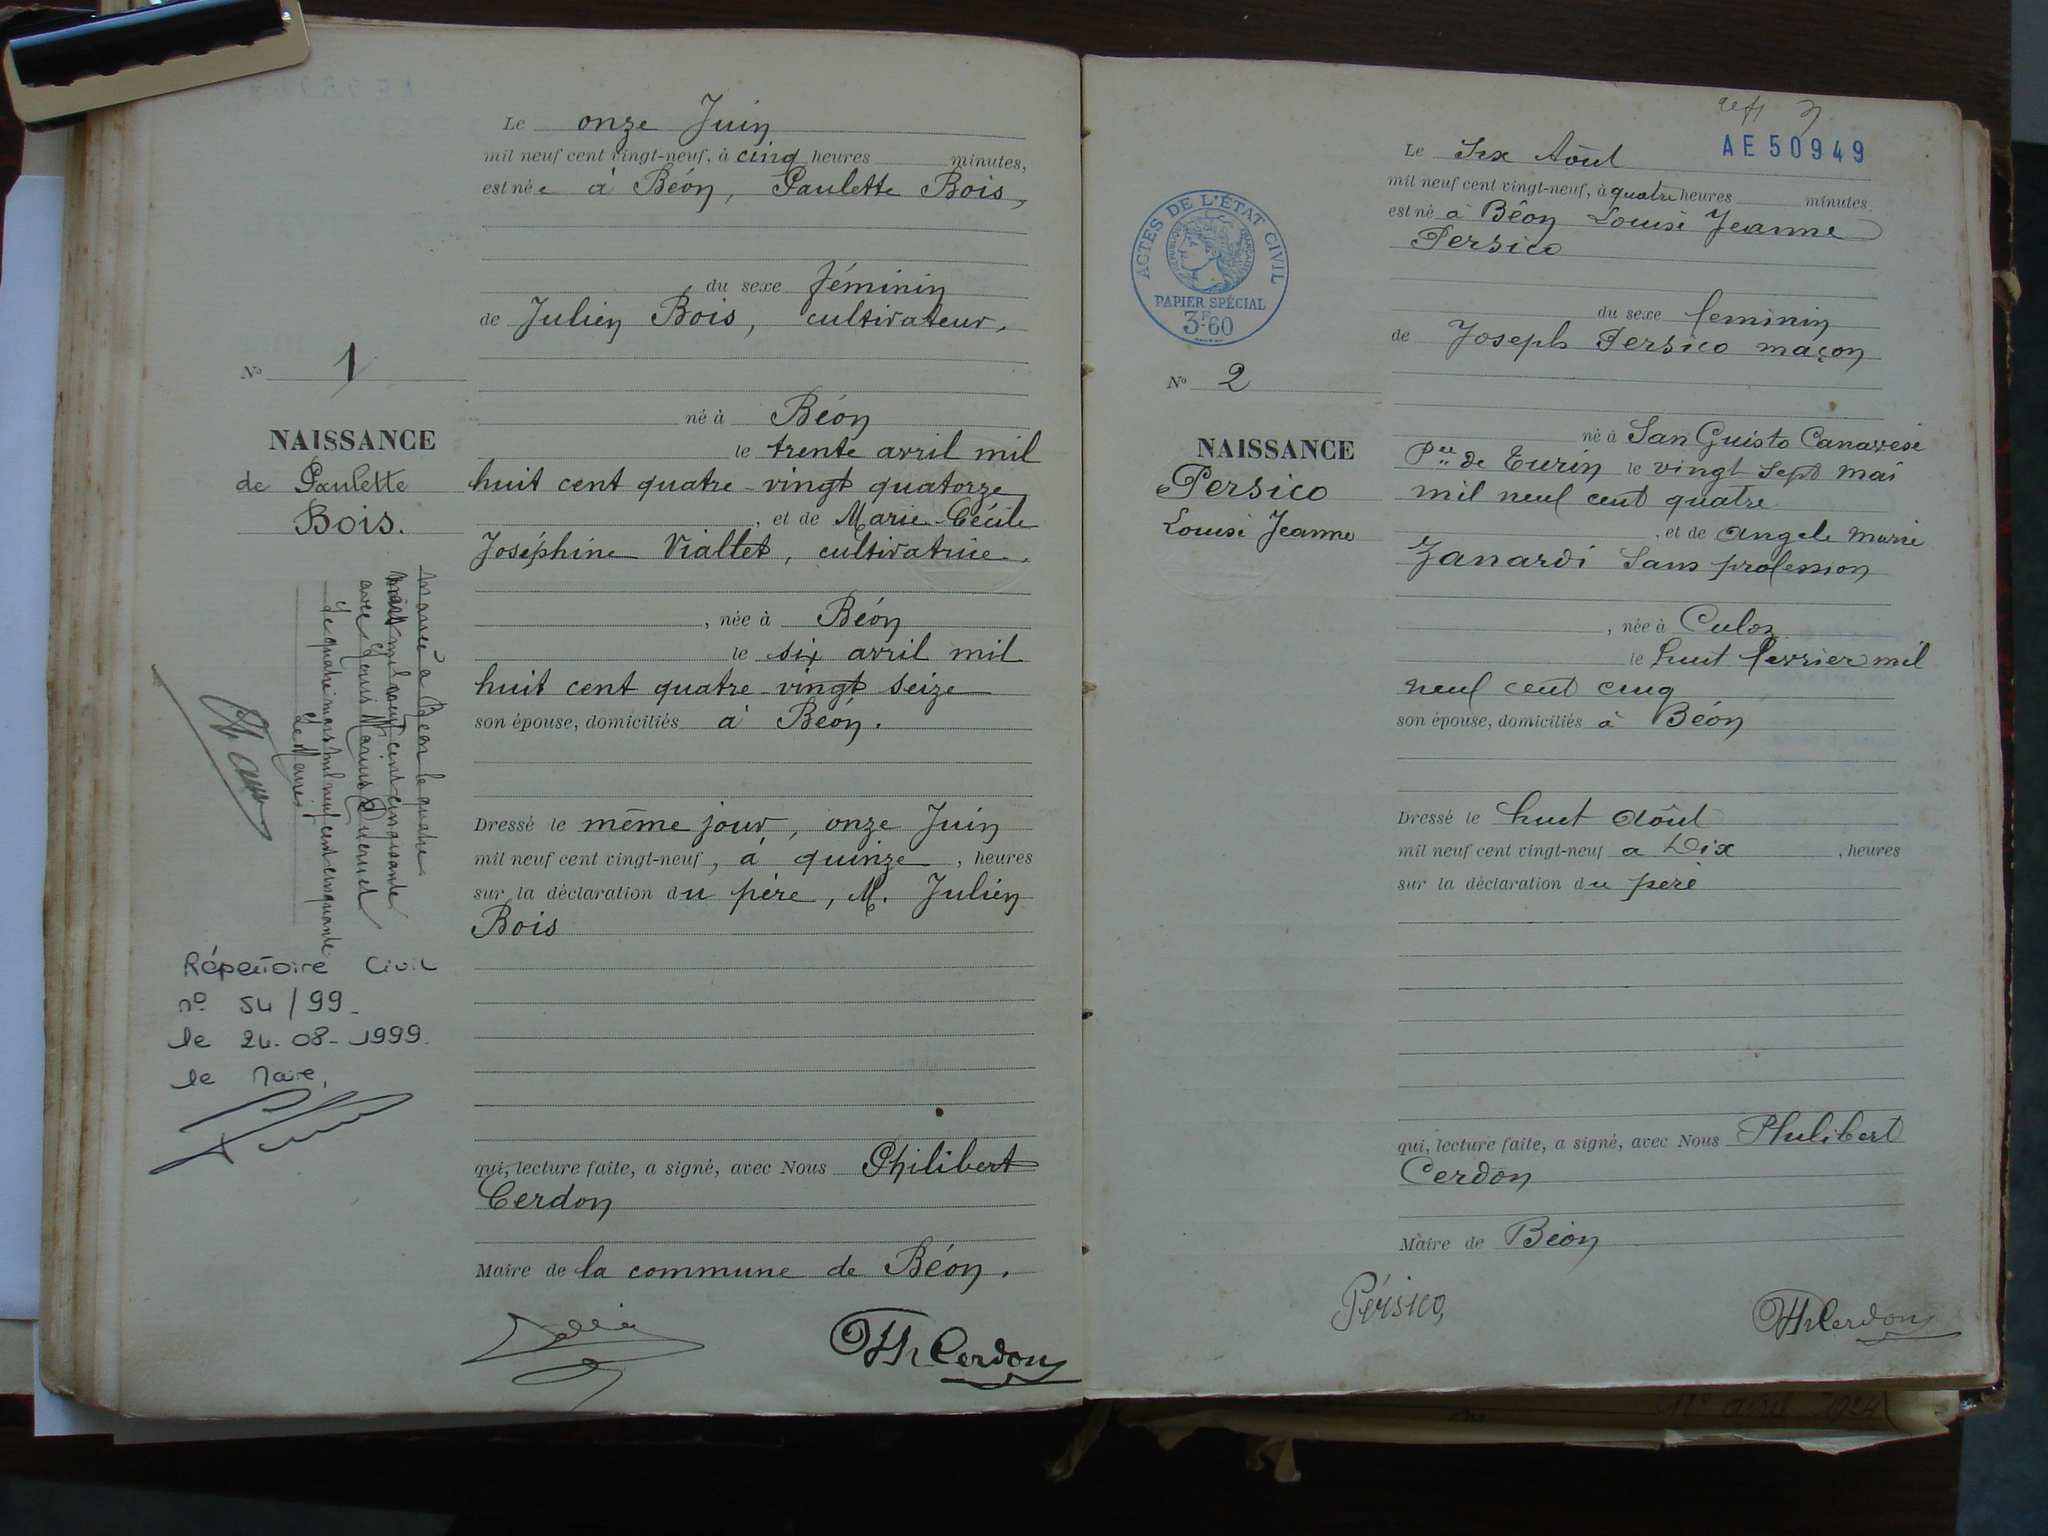 Le onze Juin
mil neuf cent vingt-neuf, à cinq heures minutes,
est née à Béon, Paulette Bois,
du sexe féminin
de Julien Bois, cultivateur,
né à Béon
le trente avril mil
huit cent quatre-vingt quatorze
, et de Marie-Cécile
Joséphine Viallet, cultivatrice,
, née à Béon
le six avril mil
huit cent quatre-vingt seize
son épouse, domiciliés à Béon.
Dressé le même jour, onze Juin
mil neuf cent vingt-neuf, à quinze, heures
sur la déclaration du père, M. Julien
Bois
qui, lecture faite, a signé, avec Nous Philibert
Cerdon
Maire de la commune de Béon.
Ph Cerdon
No 1
NAISSANCE
de Paulette
Bois.
Mariée à Béon le quatre
mars mil neuf cent cinquante
avec Louis Marius
Le quatre mars mil neuf cent cinquante
Le Maire,
Répertoire Civil
no 54/99
le 24-08-1999.
le Maire,
AE 50949
Le Six Aôut
mil neuf cent vingt-neuf, à quatre heures minutes
est né à Bêon Louise Jeanne
Persico
du sexe feminin
de Joseph Persico maçon
né à San Guisto Canavese
Pce de Turin le vingt sept mai
mil neuf cent quatre
, et de Angele Marie
Zanardi Sans profession
, née à Culoz
le huit fevrier mil
neuf cent cinq
son épouse, domiciliés à Béon
Dressé le huit Aôut
mil neuf cent vingt-neuf a Dix, heures
sur la déclaration du pere
qui, lecture faite, a signé, avec Nous Philibert
Cerdon
Maire de Béon
Pérsico,
Ph Cerdon
ACTES DE L'ÉTAT CIVIL
RÉPUBLIQUE FRANÇAISE
PAPIER SPÉCIAL
3F60
No 2
NAISSANCE
Persico
Louise Jeanne